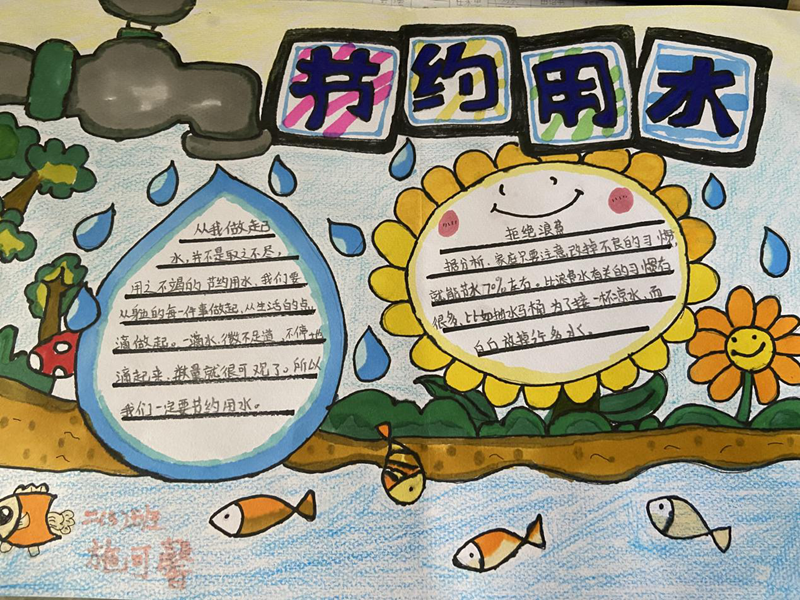 节约用水
从我做起
水,并不是取之不尽,
用之不竭的节约用水,我们要
从身边的每一件事做起,从生活的点
滴做起。一滴水,微不足道,不停
滴起来,数量就很可观了。所以
我们一定要节约用水。
拒绝浪费
据分析,家庭只要注意改掉不良的习惯,
就能节水70%左右。与浪费水有关的习惯有
很多,比如抽水马桶为了接一杯凉水,而
白白放掉许多水。
班
施可馨